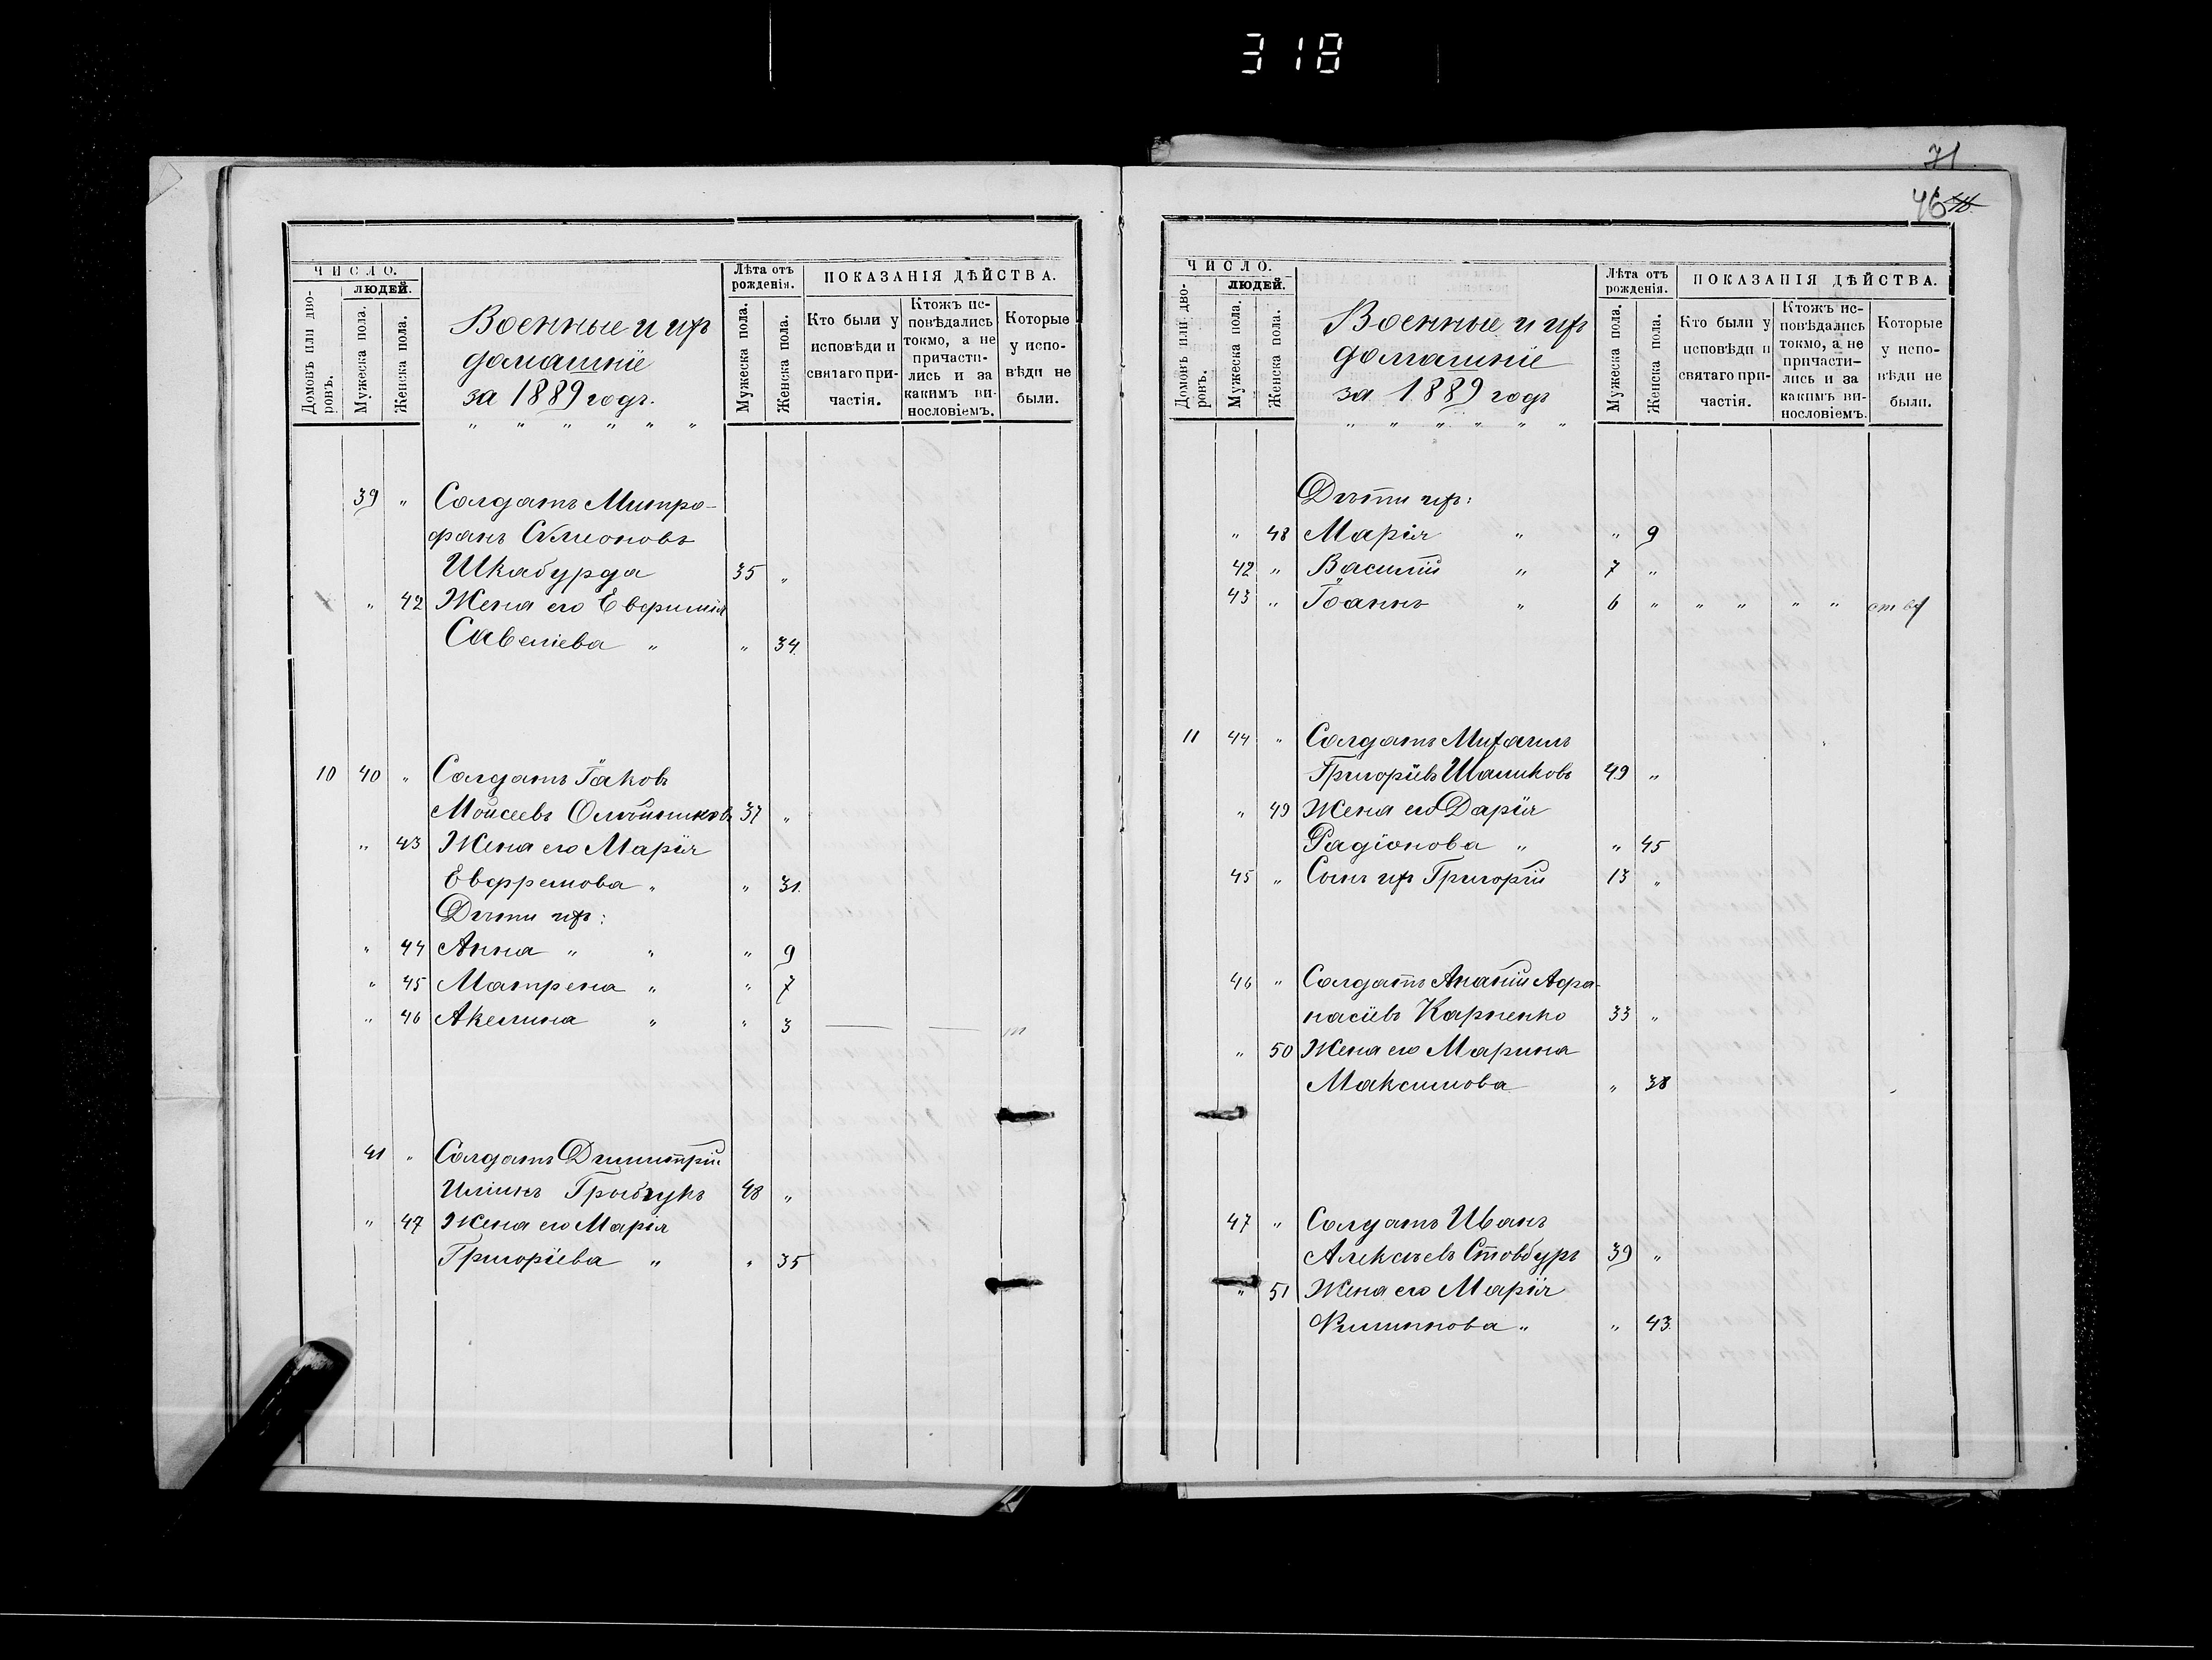 318
ЧИСЛО.
людей.
Домовъ или дво-
ровъ.
Мужеска пола.
Женска пола.
Военные и ихъ
домашніе
за 1889 годъ.
" " " " " "
Лѣта отъ
рожденія.
Мужеска пола.
Женска пола.
ПОКАЗАНІЯ ДѢЙСТВА.
Кто были у
исповѣди и
святаго при-
частія.
Ктожъ ис-
повѣдались
токмо, а не
причасти-
лись и за
какимъ ви-
нословіемъ.
Которые
у испо-
вѣди не
были.
39 " Солдатъ Митро-
фанъ
Шкабурда 35 "
" 42 Жена его Евфимія
Савеліева " " 34.
10 40 " Солдатъ Іаковъ
Моисеевъ Олѣйниковъ 37 "
" 43 Жена его Марія
Евфремова " " 31.
Дѣти ихъ:
" 44 Анна " " " 9
" 45 Матрена " " 7
" 46 Акелина " " 3
41 " Солдатъ Димитрій
Иліинъ 48 "
" 47 Жена его Марія
Григоріева " " 35
71
46
ЧИСЛО.
людей.
Домовъ или дво-
ровъ.
Мужеска пола.
Женска пола.
Военные и ихъ
домашніе
за 1889 годъ
" " " " " "
Лѣта отъ
рожденія.
Мужеска пола.
Женска пола.
ПОКАЗАНІЯ ДѢЙСТВА.
Кто были у
исповѣди и
святаго при-
частія.
Ктожъ ис-
повѣдались
токмо, а не
причасти-
лись и за
какимъ ви-
нословіемъ.
Которые
у испо-
вѣди не
были.
Дѣти ихъ:
" 48 Марія " " 9
42 " Василій " 7 "
43 " Іоаннъ " 6 " " " " "
11 44 " Солдатъ Михаилъ
Григоріевъ Шаликовъ 49 "
" 49 Жена его Дарія
Радіонова " " 45
45 " Сынъ ихъ Григорій 13 "
46 " Солдатъ Ананій Афа-
насіевъ Карпенко 33 "
" 50 Жена его Марина
Максимова " 38
47 " Солдатъ Иванъ
Алексѣевъ Стовбуръ 39 "
" 51 Жена его Марія
" " 43.